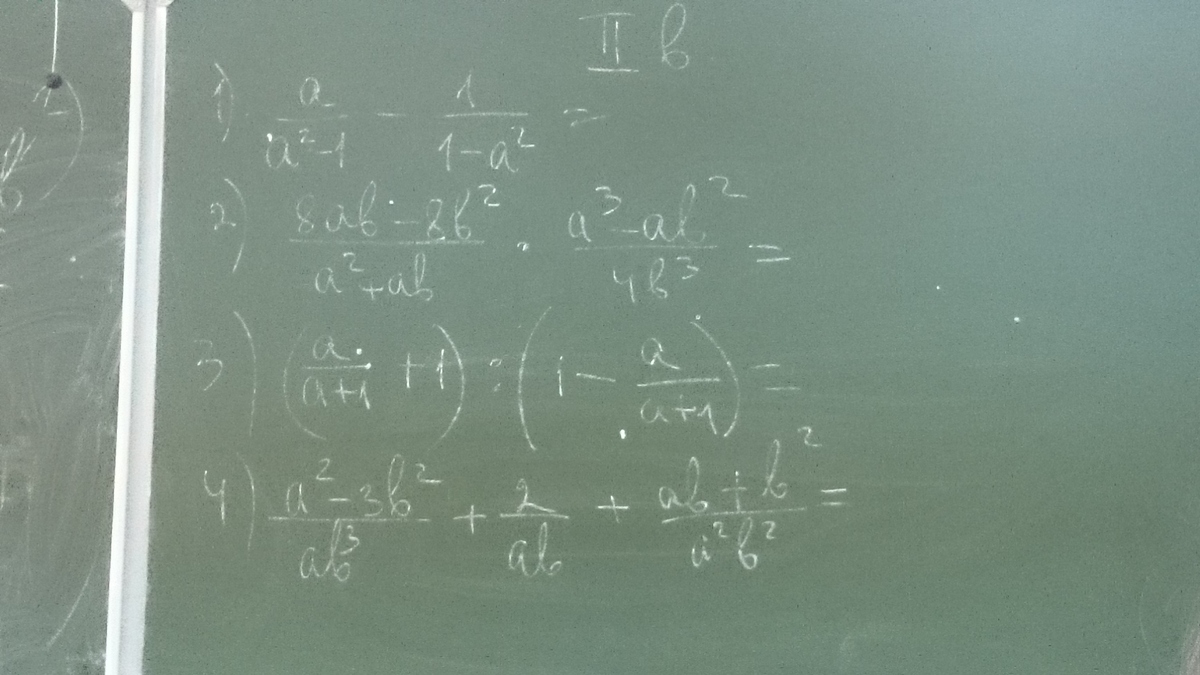 II в
1) a/(a²-1) - 1/(1-a²) =
2) (8ab-8b²)/(a²+ab) · (a³-ab²)/(4b³) =
3) (a/(a+1) +1) : (1- a/(a+1)) =
4) (a²-3b²)/(ab³) + 2/(ab) + (ab+b²)/(a²b²) =